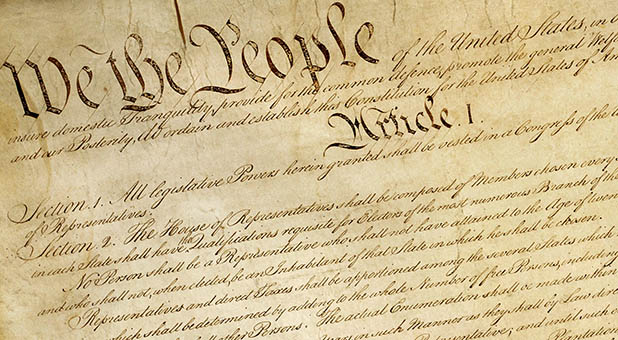 We the People of the United States, in
insure domestic Tranquility, provide for the common defence, promote the general Welf
and our Posterity, do ordain and establish this Constitution for the United States of Am
Article. I.
Section. 1. All legislative Powers herein granted shall be vested in a Congress of the
of Representatives.
Section. 2. The House of Representatives shall be composed of Members chosen every
in each State shall have the Qualifications requisite for Electors of the most numerous Branch of the
No Person shall be a Representative who shall not have attained to the Age of twent
and who shall not, when elected, be an Inhabitant of that State in which he shall be chosen.
Representatives and direct Taxes shall be apportioned among the several States which
shall be determined by adding to the whole Number of free Persons, including
other Persons. The actual Enumeration shall be made within
in such Manner as they shall by Law dire
Representative; and until such
Plantation